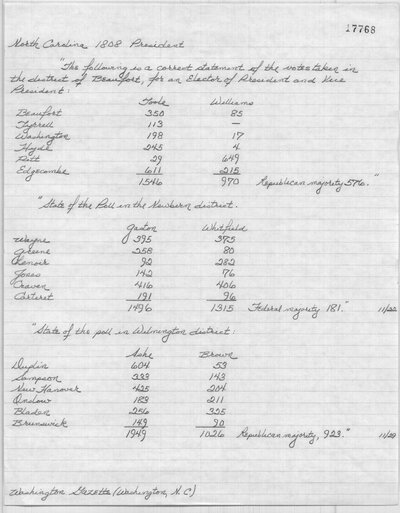 17768
North Carolina 1808 President
"The following is a correct statement of the votes taken in
the district of Beaufort, for an Elector of President and Vice
President:
Toole Williams
Beaufort 350 85
Tyrrell 113 —
Washington 198 17
Hyde 245 4
Pitt 29 649
Edgecombe 611 215
1546 970 Republican majority 576."
"State of the Poll in the Newbern district.
Gaston Whitfield
Wayne 395 375
Greene 258 80
Lenoir 92 282
Jones 142 76
Craven 416 406
Carteret 191 96
1496 1315 Federal majority 181." 11/22
"State of the poll in Wilmington district:
Ashe Brown
Duplin 604 53
Sampson 333 143
New Hanover 425 204
Onslow 183 211
Bladen 256 325
Brunswick 149 90
1949 1026 Republican majority, 923." 11/29
Washington Gazette (Washington, N.C)